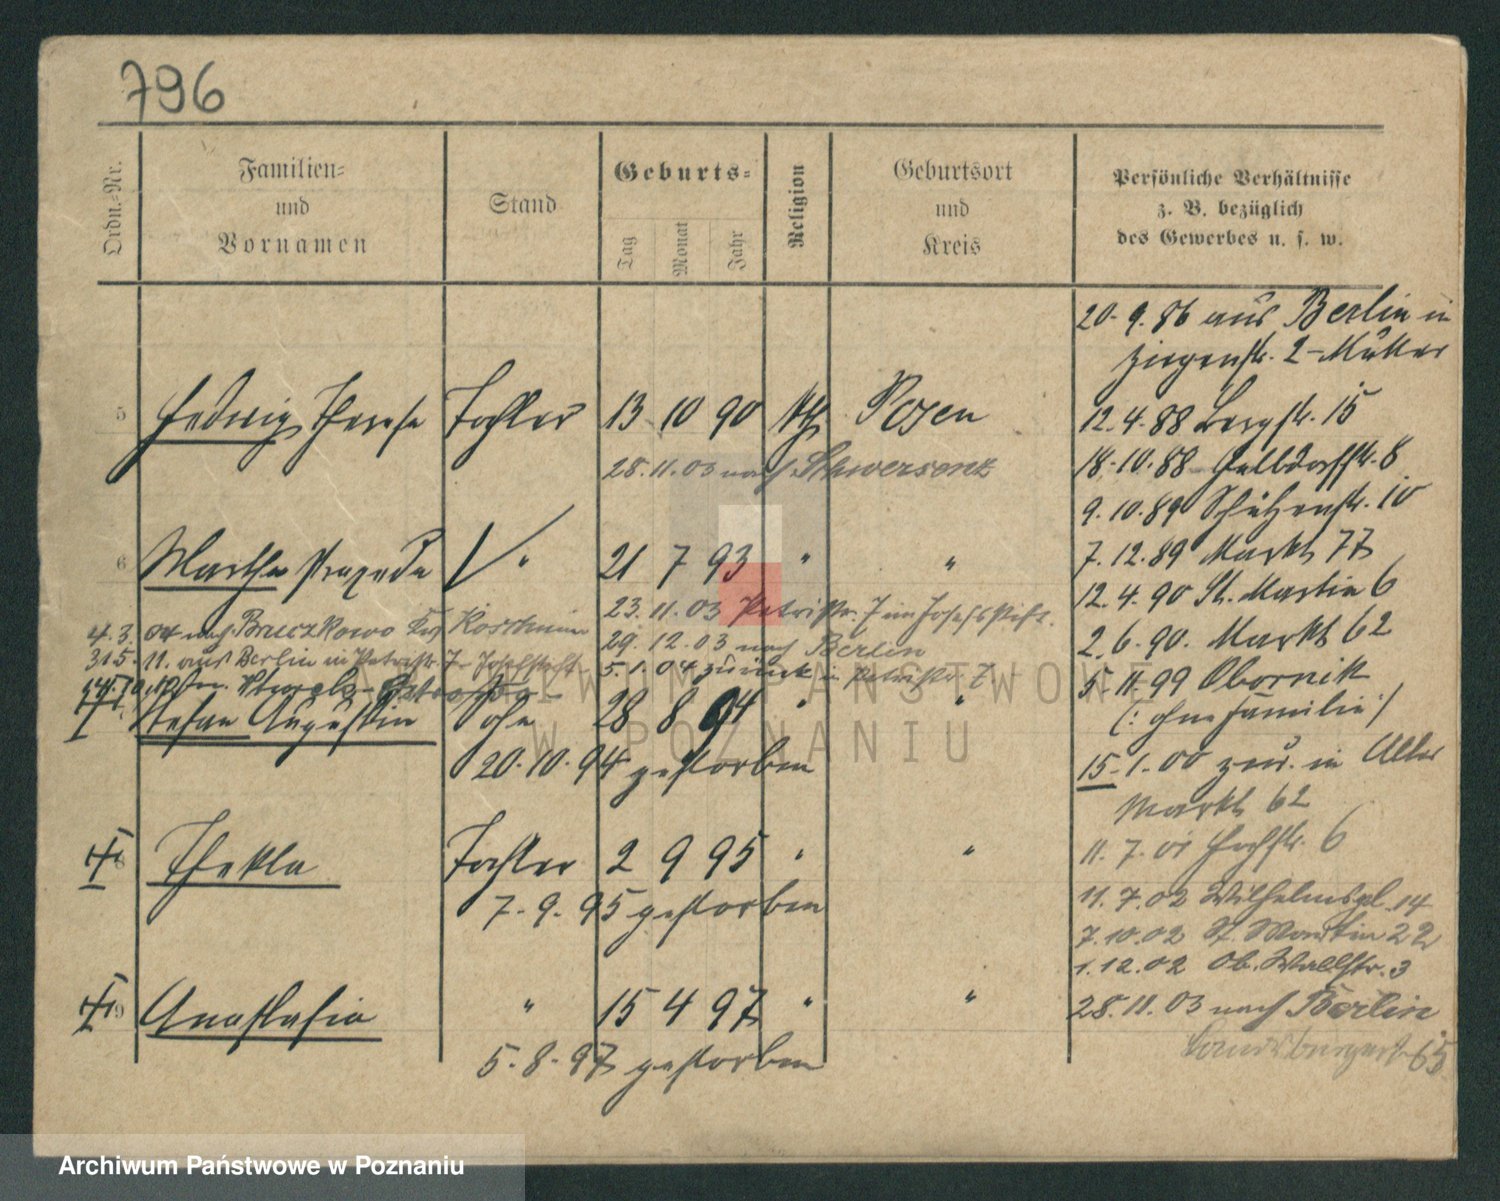 796
Ordn.-Nr.
Familien-
und
Vornamen
Stand
Geburts-
Tag
Monat
Jahr
Religion
Geburtsort
und
Kreis
Persönliche Verhältnisse
z. B. bezüglich
des Gewerbes u. s. w.
5 Hedwig Therese Tochter 13 10 90 kth Posen
28.11.03 nach Schwersenz
6 Martha Praxeda " 21 7 93 " "
23.11.03 Petristr. 7 im Josefsstift.
29.12.03 nach Berlin
5.1.04 zurück in Petristr. 7
4.3.04 nach Bruczkowo Krs Koschmin
31.5.11. aus Berlin in Petristr. 7 Josefstift
Stefan Augustin Sohn 28 8 94 " "
20.10.94 gestorben
8 Thekla Tochter 2 9 95 " "
7.9.95 gestorben
9 Anastasia " 15 4 97 " "
5.8.97 gestorben
20.9.86 aus Berlin in
Ziegenstr. 2 - Mutter
12.4.88 Bergstr. 15
18.10.88 Halbdorfstr. 8
9.10.89 Schützenstr. 10
7.12.89 Markt 77
12.4.90 St. Martin 6
2.6.90. Markt 62
5.11.99 Obornik
(: ohne Familie :)
15.1.00 zur. in Alter
Markt 62
11.7.01 Hochstr. 6
11.7.02 Wilhelmspl. 14
7.10.02 St. Martin 22
1.12.02 Ob. Wallstr. 3
28.11.03 nach Berlin
Landsbergerstr 65
ARCHIWUM PAŃSTWOWE
W POZNANIU
Archiwum Państwowe w Poznaniu